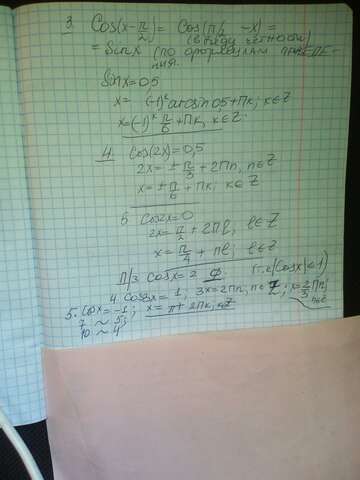 3. Cos(x - π/2) = Cos(π/2 - x) =
(в виду четности)
= Sinx (по формулам приведе-
ния.
Sinx = 0,5
x = (-1)^k arcsin 0,5 + πk; k∈Z
x = (-1)^k π/6 + πk, k∈Z.
4. Cos(2x) = 0,5
2x = ± π/3 + 2πn, n∈Z
x = ± π/6 + πk; k∈Z
6 Cos2x = 0
2x = π/2 + 2πl, l∈Z
x = π/4 + πl; l∈Z
П/3 Cosx = 2 Ø. (т.к |Cosx| ≤ 1)
4 Cos3x = 1; 3x = 2πn; n∈Z; x = 2/3 πn; n∈Z
5. Cosx = -1; x = π + 2πk; k∈Z
7 ~ 5;
10 ~ 4